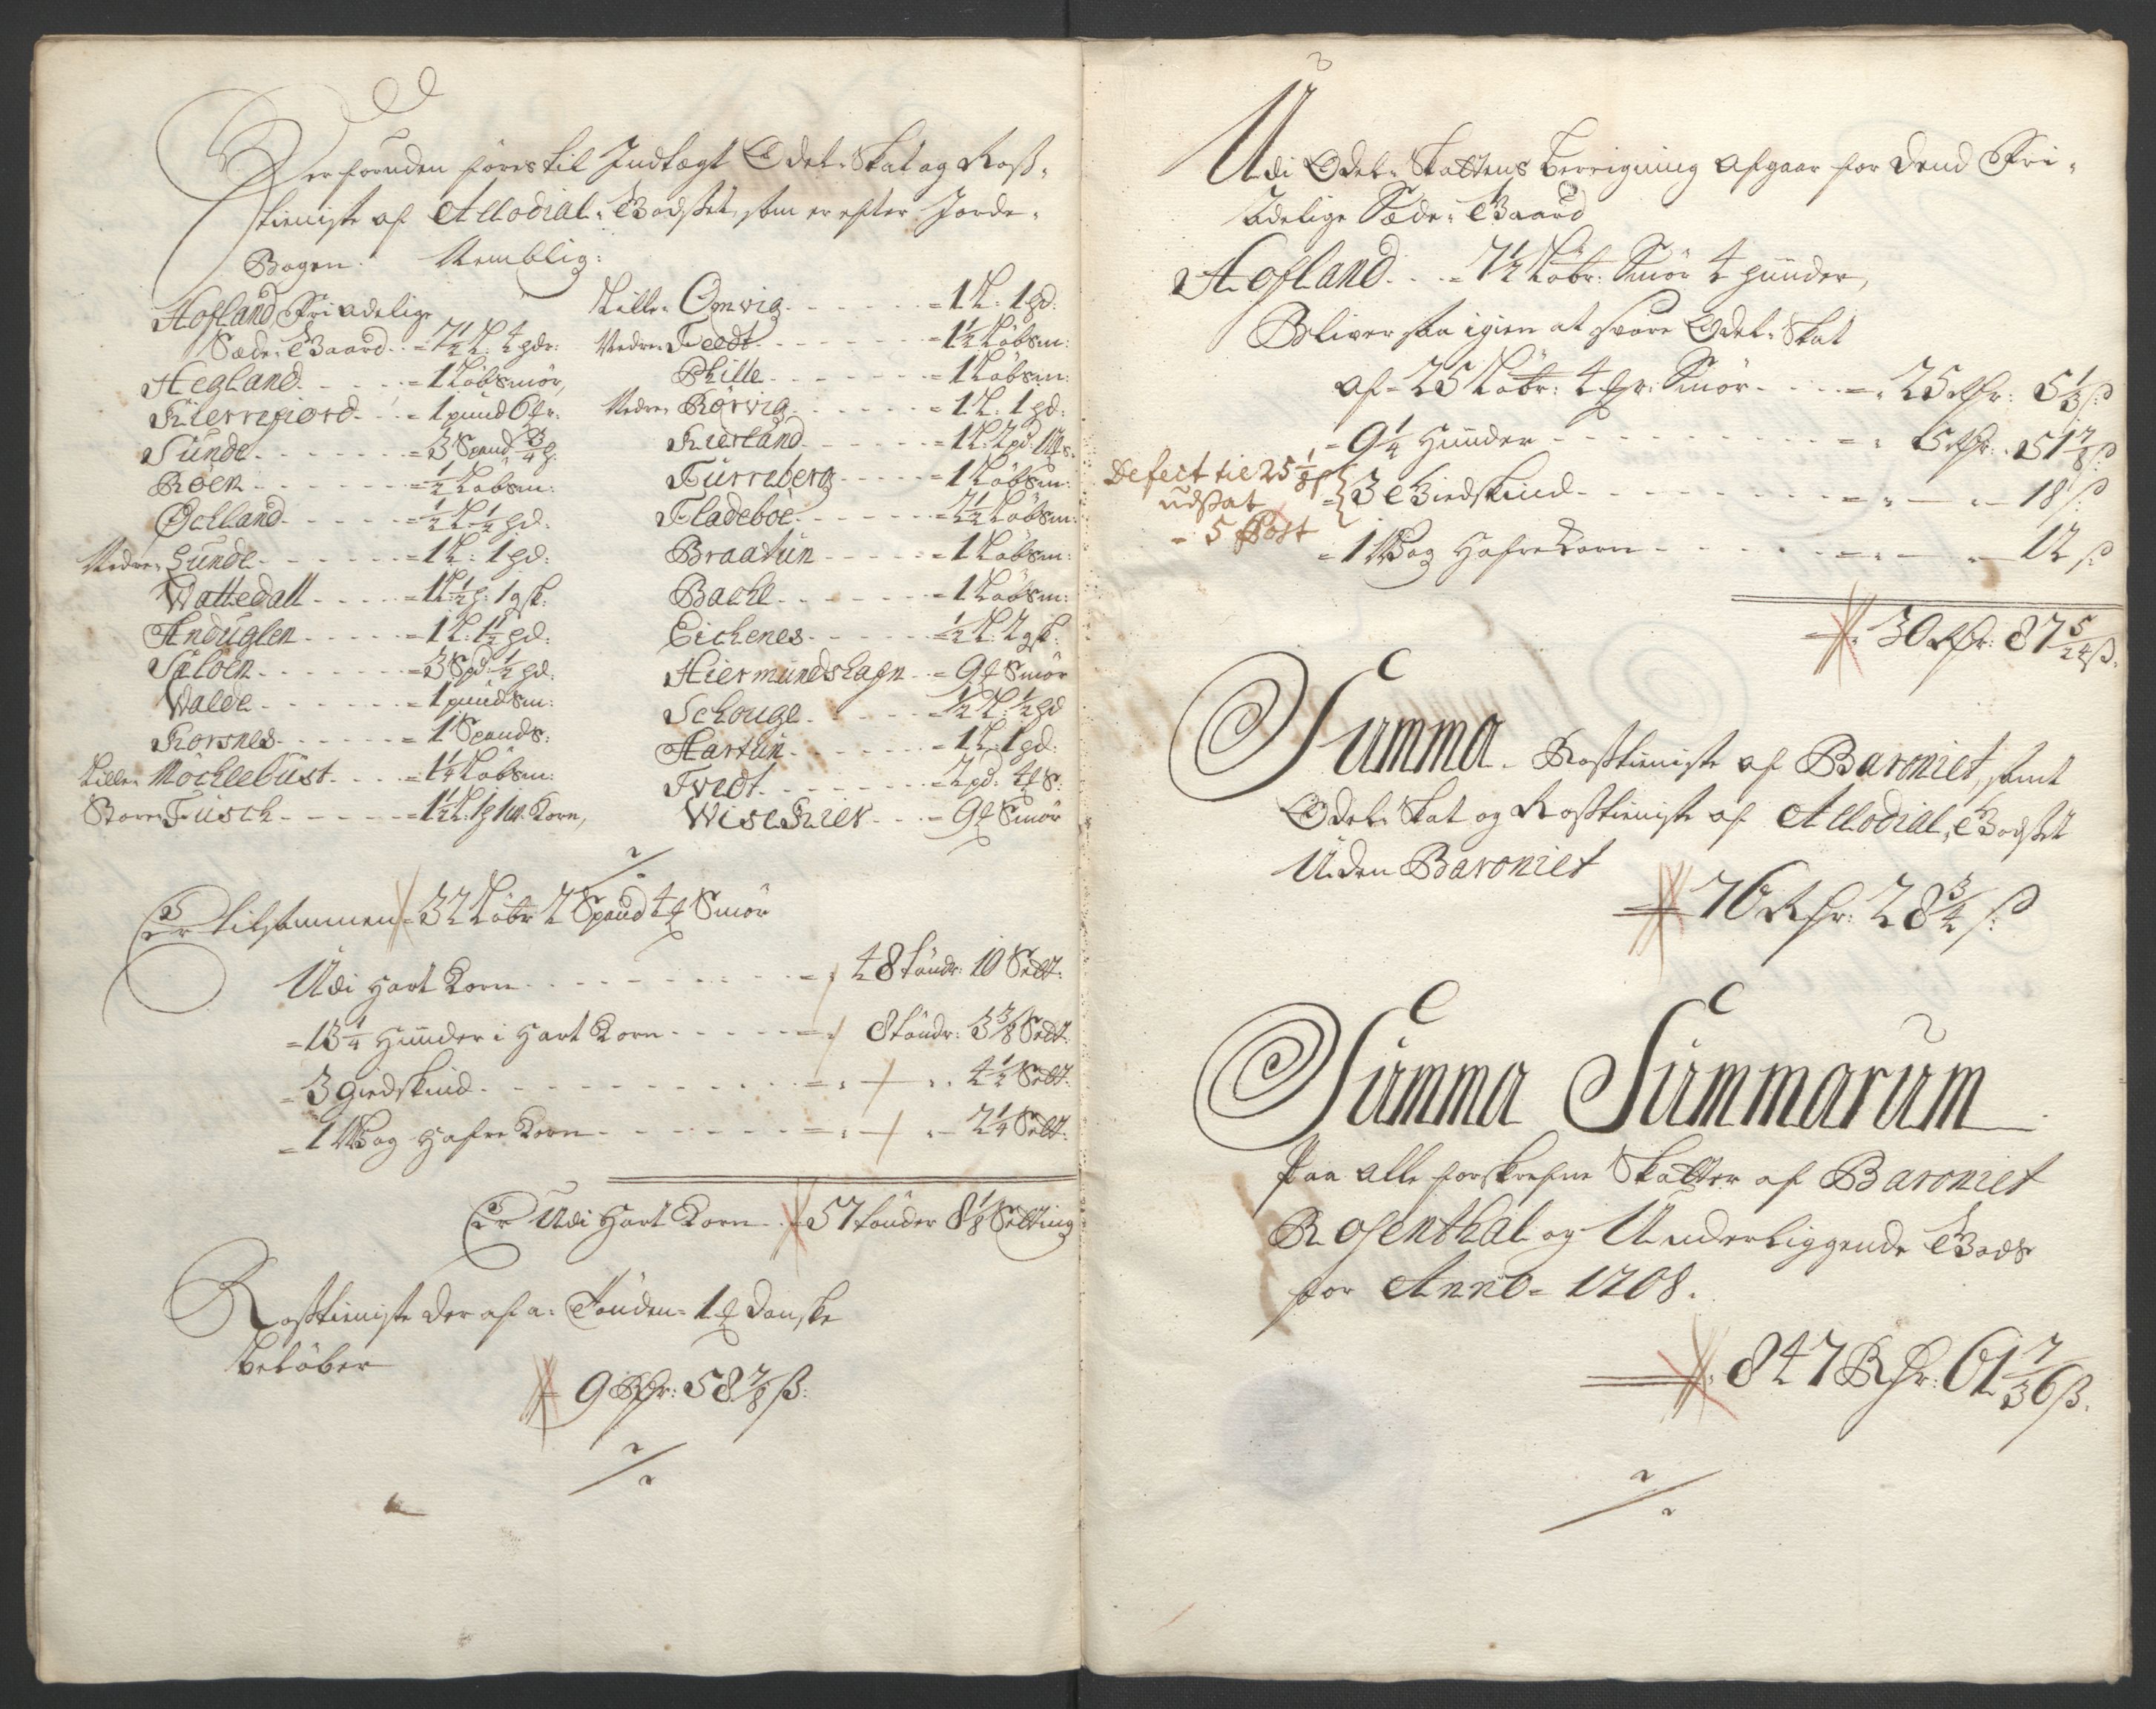 Der foruden föres til Indtægt Odel-Skat og Ross-
tieniste af Allodial-Godset, som er efter Jorde-
Bogen. Nemblig:
Hofland Fri Adelige
Sæde-Gaard - - = 7½ L: 4 hdr:
Hegland - - - = 1 Löbsmör,
Kierrefiord - - = 1 pund 6
Sunde - - - = 3 Spand ¾
Röen - - - = ½ Löbsm:
Öchland - - - = ½ L: ½ hd:
Nedre Sunde - - - = 1 L: 1 hd:
Wattedall - - - = 1 L: ½ h: 1 gsk:
Anduglen - - - = 1 L: 1½ hd:
Sæloen - - - = 3 Spd: ½ hd:
Walde - - - = 1 pund sm:
Korsnes - - - = 1 Spands:
Lille Möchlebust - - = 1¼ Löbsm:
Store Fusch - - - = 1½ L: 1 h 1 W: Korn,
Lille Omvig - - - = 1 L: 1 hd:
Nedre Tvedt - - - = 1½ Löbsm:
Phille - - - = 1 Löbsm:
Nedre Rörvig - - - = 1 L: 1 hd:
Kierland - - - = 1 L: 2 pd:
Furreberg - - - = 1 Löbsm:
Fladeboe - - - = 2½ Löbsm:
Braatun - - - = 1 Löbsm:
Bache - - - = 1 Löbsm:
Eichenes - - - = ½ L: 2 gsk:
Hiermundshagn - - = 9 ℔ Smör
Schouge - - - = ½ L: ½ hd
Hartun - - - = 1 L: 1 hd:
Tvedt - - - = 2 pd: 4 ℔ S:
Wischier - - - = 9 ℔ Smör
Er tilsammen = 32 Löbr 2 Spand 4 ℔ Smör
Udi Hart Korn - - - = 48 tönder: 10 Sett:
= 13¼ Huuder i Hart Korn - - - = 8 töndr: 3⅜ Sett:
= 3 giedskind - - - = 4½ Sett:
= 1 Wog Hafre Korn - - - = 2¼ Sett:
Er Udi Hart Korn - = 57 tönder 8⅛ Setting
Rosstieniste der af a: Tönden = 1 ℔ danske
belöber
= 9 Rdr: 58⅞ ß:
Udi Odel-Skattens beregning afgaar for dend Fri-
Adelige Sæde-Gaard
Hofland - - = 7½ Löbr: Smör 4 huuder,
Bliver saa igien at svare Odel-Skat
af = 25 Löbr: 4 ℔r: Smör - - - = 25 Rdr: 5⅓ ß:
= 9¼ Huuder - - - = 5 Rdr: 51⅞ ß:
Defect til 25⅛ ß
udsat
= 5 Post
= 3 Giedskind - - - = 18 ß
= 1 Wog Hafre Korn - - - = 12 ß
= 30 Rdr: 87 5/24 ß.
Summa - Rosstieniste af Baroniet, samt
Odel-Skat og Rosstieniste af Allodial-Godset
Uden Baroniet
= 76 Rdr: 28¾ ß:
Summa Summarum
Paa alle forskrefne Skatter af Baroniet
Rosenthal og Underliggende Gods
for Anno = 1708.
= 847 Rdr: 61 7/36 ß.